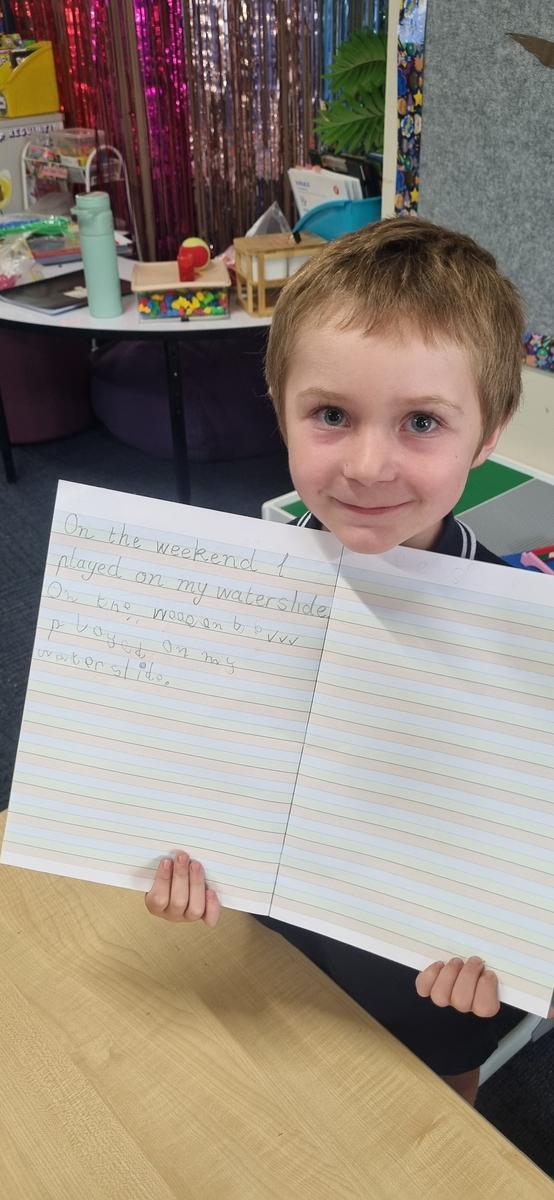 On the weekend I
played on my waterslide
On the
played on my
waterslide.